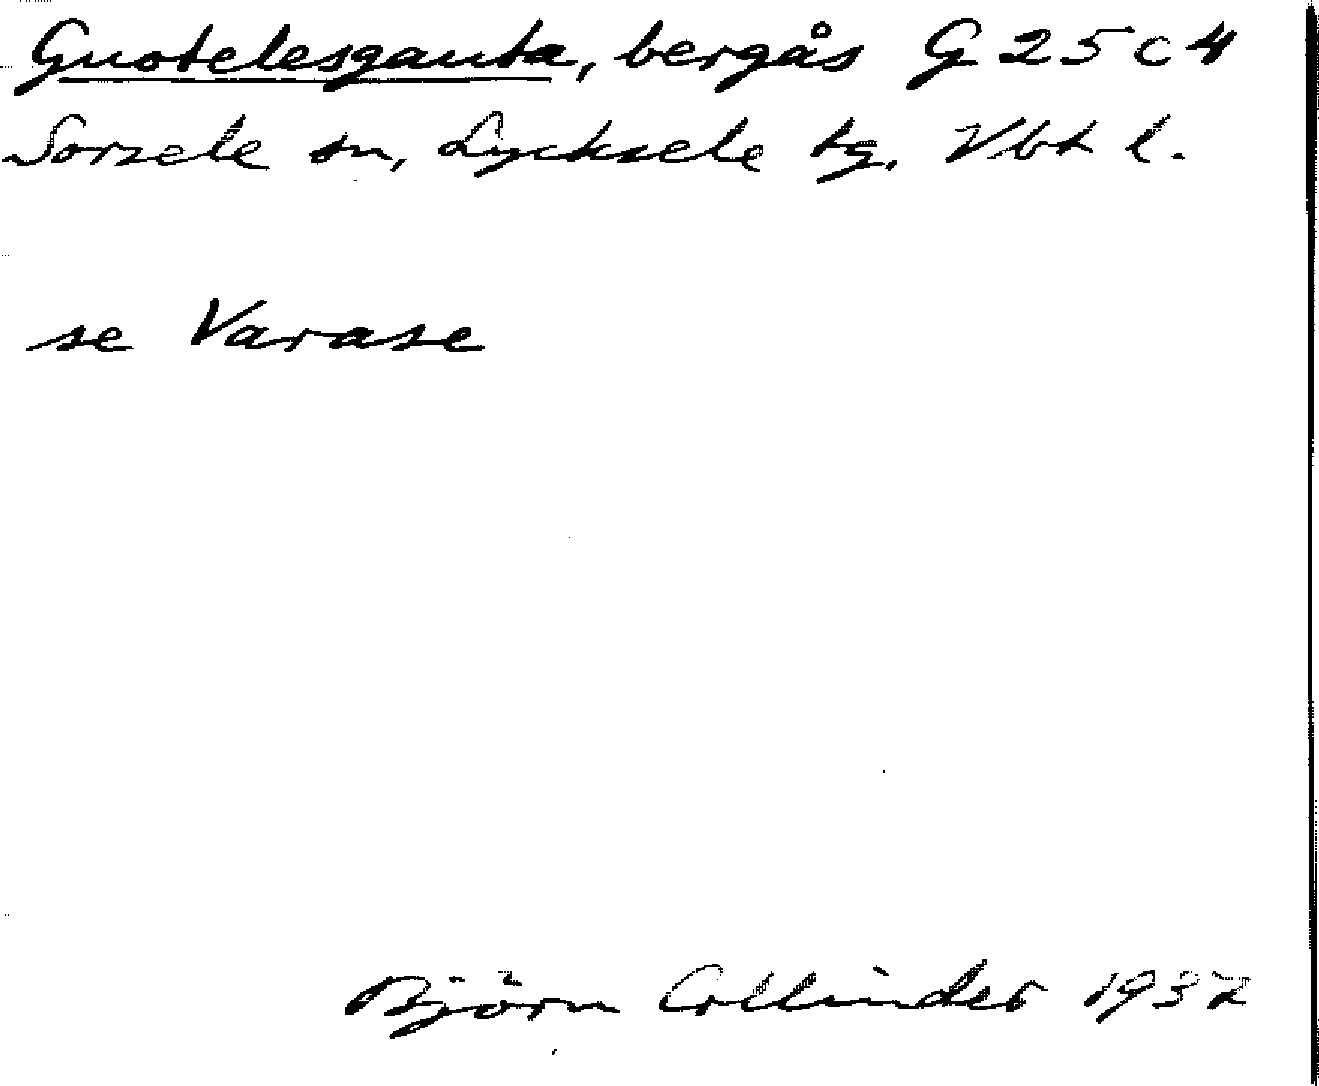 Guotelesgauta, bergås G 25 c 4
Sorsele sn, Lycksele tg. Vbt l.
se Varase
Björn Collinder 1937